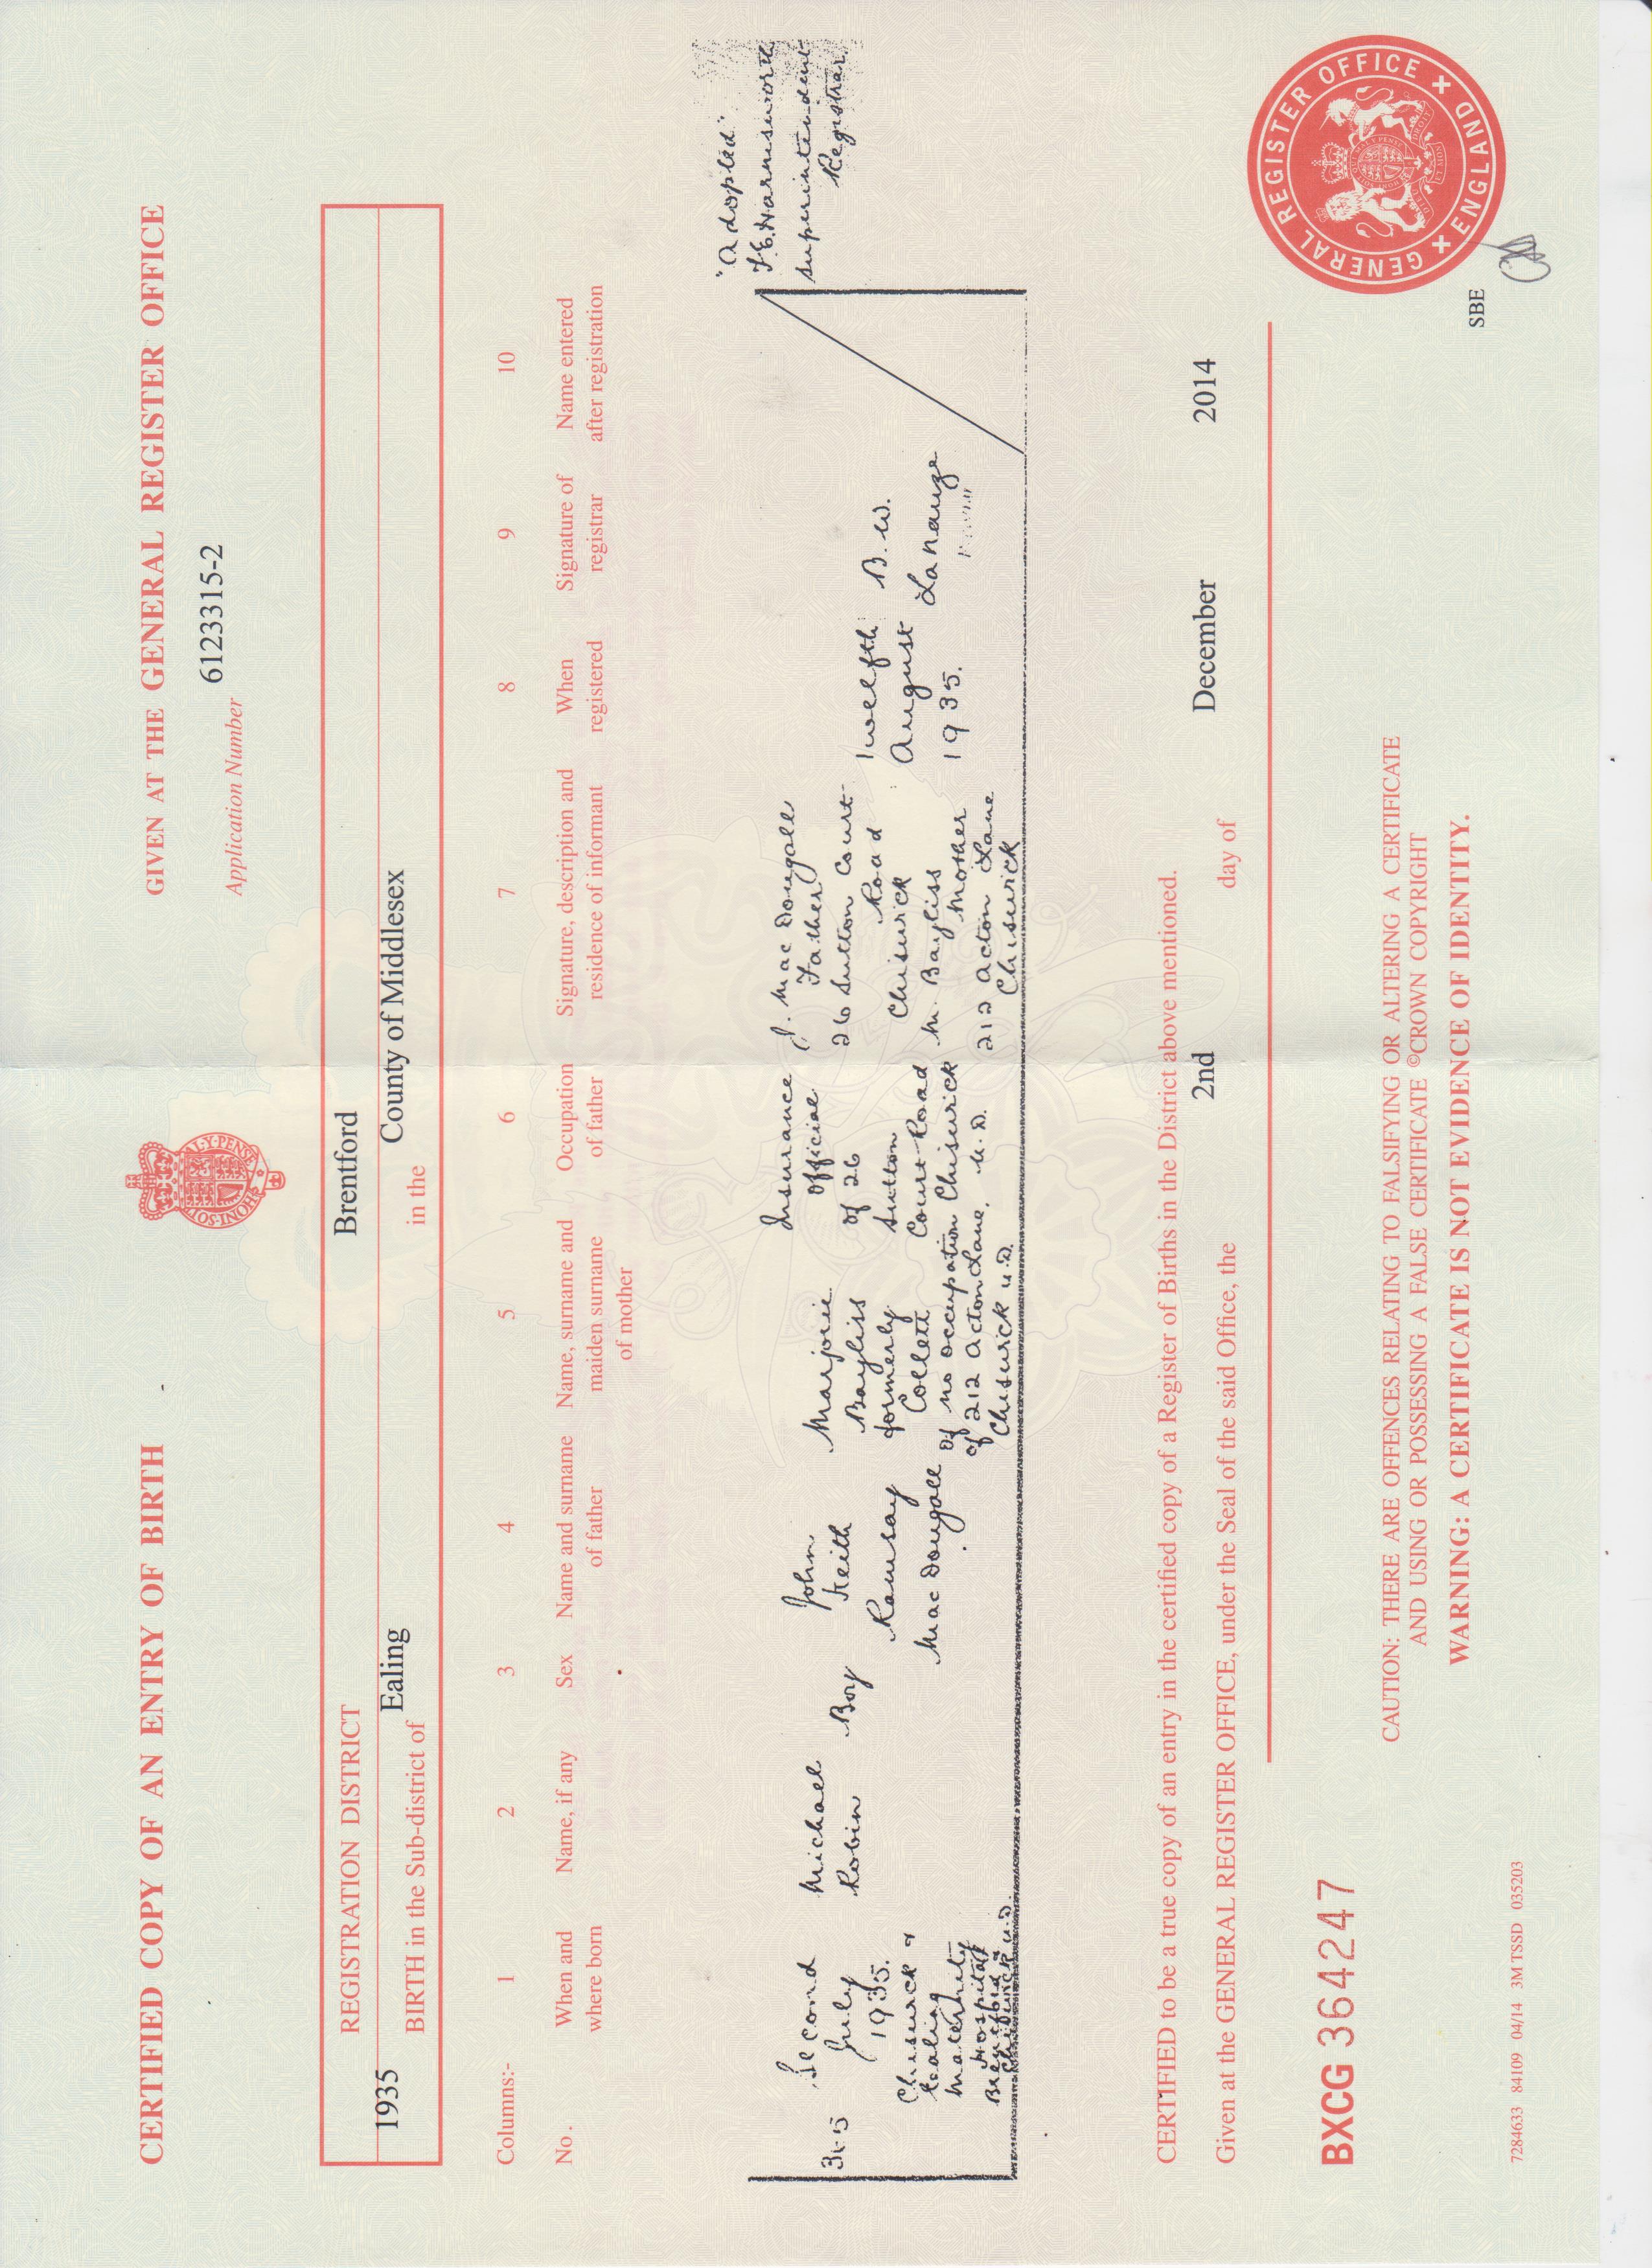 CERTIFIED COPY OF AN ENTRY OF BIRTH
GIVEN AT THE GENERAL REGISTER OFFICE
Application Number 6123315-2
REGISTRATION DISTRICT Brentford
1935 BIRTH in the Sub-district of Ealing in the County of Middlesex
Columns:- 1 2 3 4 5 6 7 8 9 10
No.
When and
where born
Name, if any
Sex
Name and surname
of father
Name, surname and
maiden surname
of mother
Occupation
of father
Signature, description and
residence of informant
When
registered
Signature of
registrar
Name entered
after registration
Second
July
1935.
Chiswick &
Ealing
Maternity
Hospital
Brentford &
Chiswick U.D.
Michael
Robin
Boy
John
Keith
Ramsay
MacDougall
Marjorie
Bayliss
formerly
Collett
of no occupation
of 212 Acton Lane.
Chiswick U.D.
Insurance
Official
of 26
Sutton
Court Road
Chiswick
U.D.
J. MacDougall
Father
26 Sutton Court
Road
Chiswick
M. Bayliss
Mother
212 Acton Lane
Chiswick
Twelfth
August
1935.
B. W.
La Nauze
"Adopted".
Harmsworth
Superintendent
Registrar.
CERTIFIED to be a true copy of an entry in the certified copy of a Register of Births in the District above mentioned.
Given at the GENERAL REGISTER OFFICE, under the Seal of the said Office, the 2nd day of December 2014
BXCG 364247
CAUTION: THERE ARE OFFENCES RELATING TO FALSIFYING OR ALTERING A CERTIFICATE
AND USING OR POSSESSING A FALSE CERTIFICATE ©CROWN COPYRIGHT
WARNING: A CERTIFICATE IS NOT EVIDENCE OF IDENTITY.
7284633 84109 04/14 3M TSSD 035203
SBE
GENERAL REGISTER OFFICE
ENGLAND